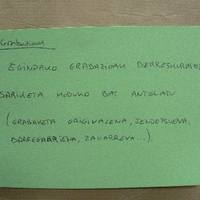 Grabazioak
EGINDAKO GRABAZIOAK DERRESKURATZ
SARIKETA MODUKO BAT ANTOLATU
(GRABAKETA ORIGINALENA, JENDETSUENA,
BARREGARRIENA, ZAHARRENA...).